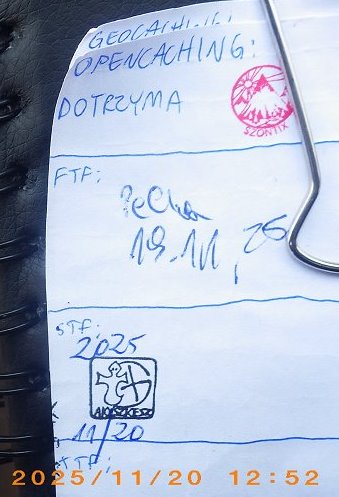 GEOCACHING:
OPENCACHING:
DOTRZYMA
SZONTIX
FTF:
19.11,25
STF:
2025
11/20
TTF:
2025/11/20 12:52